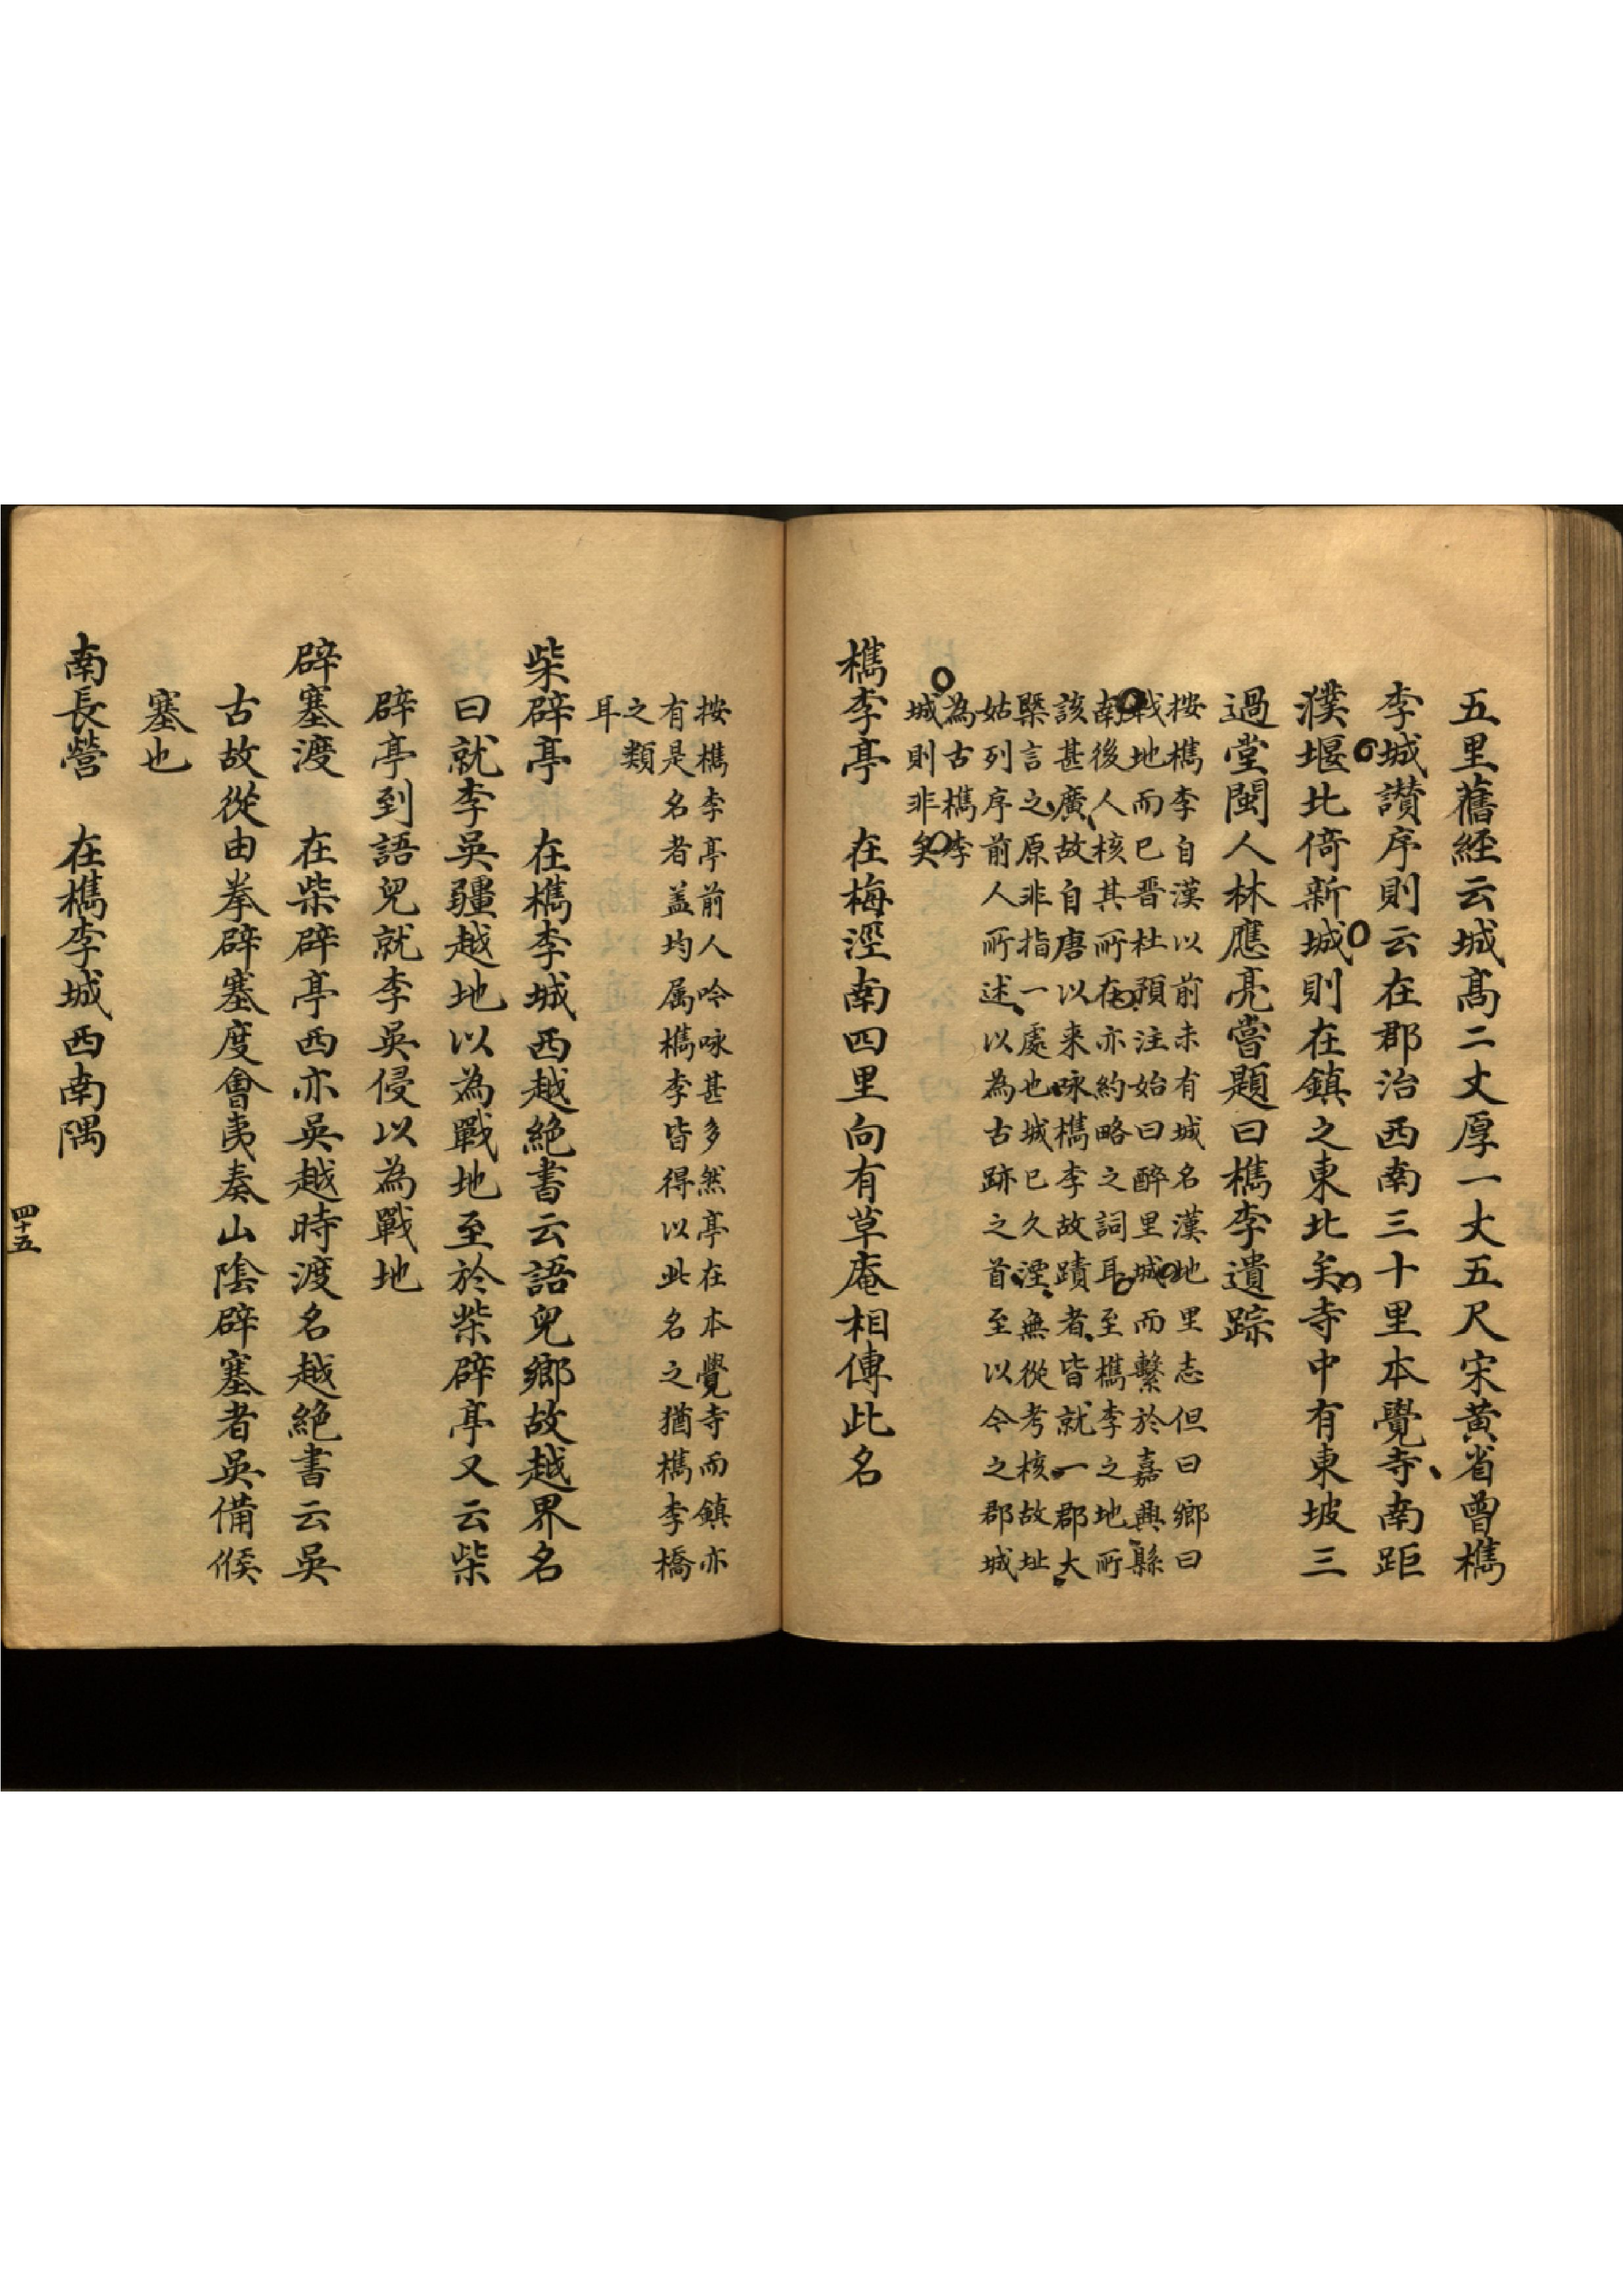 五里舊經云城髙二丈厚一丈五尺宋黄省曾檇
李城讃序則云在郡治西南三十里本覺寺南距
濮堰北倚新城則在鎮之東北矣寺中有東坡三
過堂閩人林應亮嘗題曰檇李遺踪
按檇李自漢以前未有城名漢地里志但曰鄉曰
戦地而已晋杜預注始曰醉里城而繫於嘉興縣
南後人核其所在亦約略之詞耳至檇李之地所
該甚廣故自唐以来咏檇李故蹟者皆就一郡大
槩言之原非指一處也城已久湮無從考核故址
姑列序前人所述以為古跡之首至以今之郡城
為古檇李
城則非矣
檇李亭 在梅涇南四里向有草庵相傳此名
按檇李亭前人吟咏甚多然亭在本覺寺而鎮亦
有是名者盖均属檇李皆得以此名之猶檇李橋
之類
耳
柴辟亭 在檇李城西越絶書云語兒鄉故越界名
曰就李吳疆越地以為戰地至於柴辟亭又云柴
辟亭到語兒就李吳侵以為戰地
辟塞渡 在柴辟亭西亦吳越時渡名越絶書云吳
古故從由拳辟塞度會夷奏山陰辟塞者吳備候
塞也
南長營 在檇李城西南隅
四十五